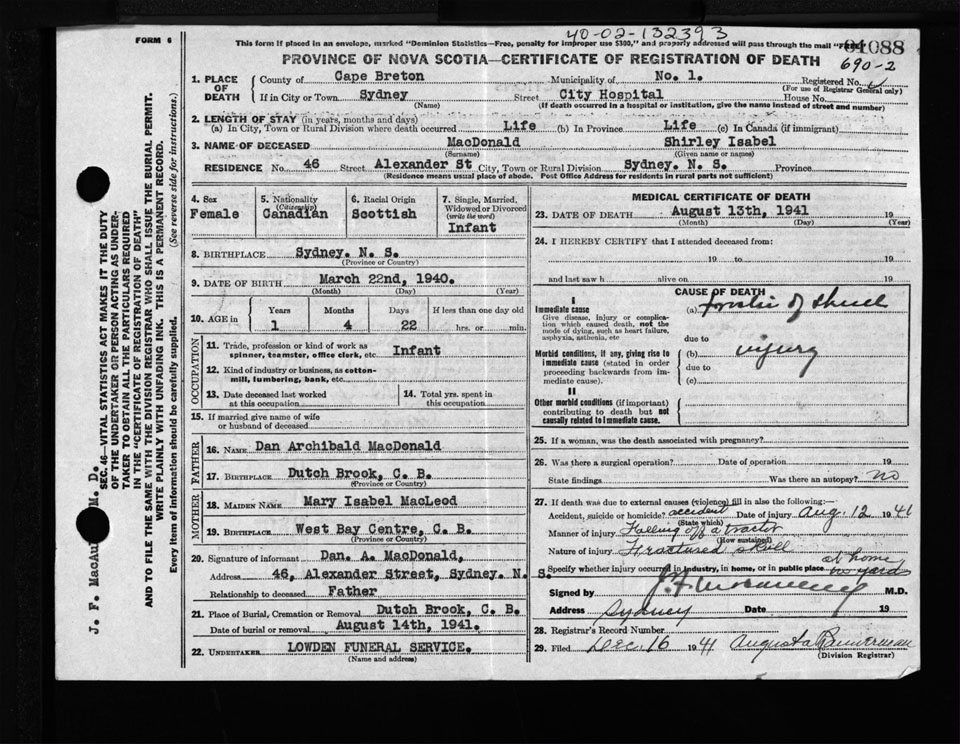 40-02-132393
FORM 6
This form if placed in an envelope, marked "Dominion Statistics—Free, penalty for improper use $300," and properly addressed will pass through the mail "FREE"
01088
690-2
PROVINCE OF NOVA SCOTIA—CERTIFICATE OF REGISTRATION OF DEATH
1. PLACE OF DEATH
County of Cape Breton Municipality of No. 1. Registered No.
(For use of Registrar General only)
If in City or Town Sydney Street City Hospital House No.
(Name) (If death occurred in a hospital or institution, give the name instead of street and number)
2. LENGTH OF STAY (in years, months and days)
(a) In City, Town or Rural Division where death occurred Life (b) In Province Life (c) In Canada (if immigrant)
3. NAME OF DECEASED MacDonald Shirley Isabel
(Surname) (Given name or names)
RESIDENCE No. 46 Street Alexander St City, Town or Rural Division Sydney. N. S. Province
(Residence means usual place of abode. Post Office Address for residents in rural parts not sufficient)
4. Sex Female
5. Nationality (Citizenship) Canadian
6. Racial Origin Scottish
7. Single, Married, Widowed or Divorced (write the word) Infant
8. BIRTHPLACE Sydney. N. S.
(Province or Country)
9. DATE OF BIRTH March 22nd, 1940.
(Month) (Day) (Year)
10. AGE in Years Months Days If less than one day old
1 4 22 hrs. or min.
OCCUPATION
11. Trade, profession or kind of work as spinner, teamster, office clerk, etc. Infant
12. Kind of industry or business, as cotton-mill, lumbering, bank, etc.
13. Date deceased last worked at this occupation
14. Total yrs. spent in this occupation
15. If married give name of wife or husband of deceased
FATHER
16. NAME Dan Archibald MacDonald
17. BIRTHPLACE Dutch Brook, C. B.
(Province or Country)
MOTHER
18. MAIDEN NAME Mary Isabel MacLeod
19. BIRTHPLACE West Bay Centre, C. B.
(Province or Country)
20. Signature of informant Dan. A. MacDonald,
Address 46, Alexander Street, Sydney. N. S.
Relationship to deceased Father
21. Place of Burial, Cremation or Removal Dutch Brook, C. B.
Date of burial or removal August 14th, 1941.
22. UNDERTAKER LOWDEN FUNERAL SERVICE.
(Name and address)
MEDICAL CERTIFICATE OF DEATH
23. DATE OF DEATH August 13th, 1941 19
(Month) (Day) (Year)
24. I HEREBY CERTIFY that I attended deceased from:
19 to 19
and last saw h alive on 19
CAUSE OF DEATH
I
Immediate cause (a) of skull
Give disease, injury or complication which caused death, not the mode of dying, such as heart failure, asphyxia, asthenia, etc
due to
Morbid conditions, if any, giving rise to immediate cause (stated in order proceeding backwards from immediate cause).
(b) injury
due to
(c)
II
Other morbid conditions (if important) contributing to death but not causally related to immediate cause.
25. If a woman, was the death associated with pregnancy?
26. Was there a surgical operation? Date of operation 19
State findings Was there an autopsy? no
27. If death was due to external causes (violence) fill in also the following:
Accident, suicide or homicide? accident Date of injury Aug. 12 1941
(State which)
Manner of injury Falling off a tractor
(How sustained)
Nature of injury Fractured skull
Specify whether injury occurred in industry, in home, or in public place at home in yard
Signed by M.D.
Address Sydney Date 19
28. Registrar's Record Number
29. Filed Dec. 16 1941 Augusta Bannerman
(Division Registrar)
J. F. MacAu M. D.
SEC. 46—VITAL STATISTICS ACT MAKES IT THE DUTY
OF THE UNDERTAKER OR PERSON ACTING AS UNDER-
TAKER TO OBTAIN ALL THE PARTICULARS REQUIRED
IN THE "CERTIFICATE OF REGISTRATION OF DEATH"
AND TO FILE THE SAME WITH THE DIVISION REGISTRAR WHO SHALL ISSUE THE BURIAL PERMIT.
WRITE PLAINLY WITH UNFADING INK. THIS IS A PERMANENT RECORD.
Every item of information should be carefully supplied. (See reverse side for instructions.)